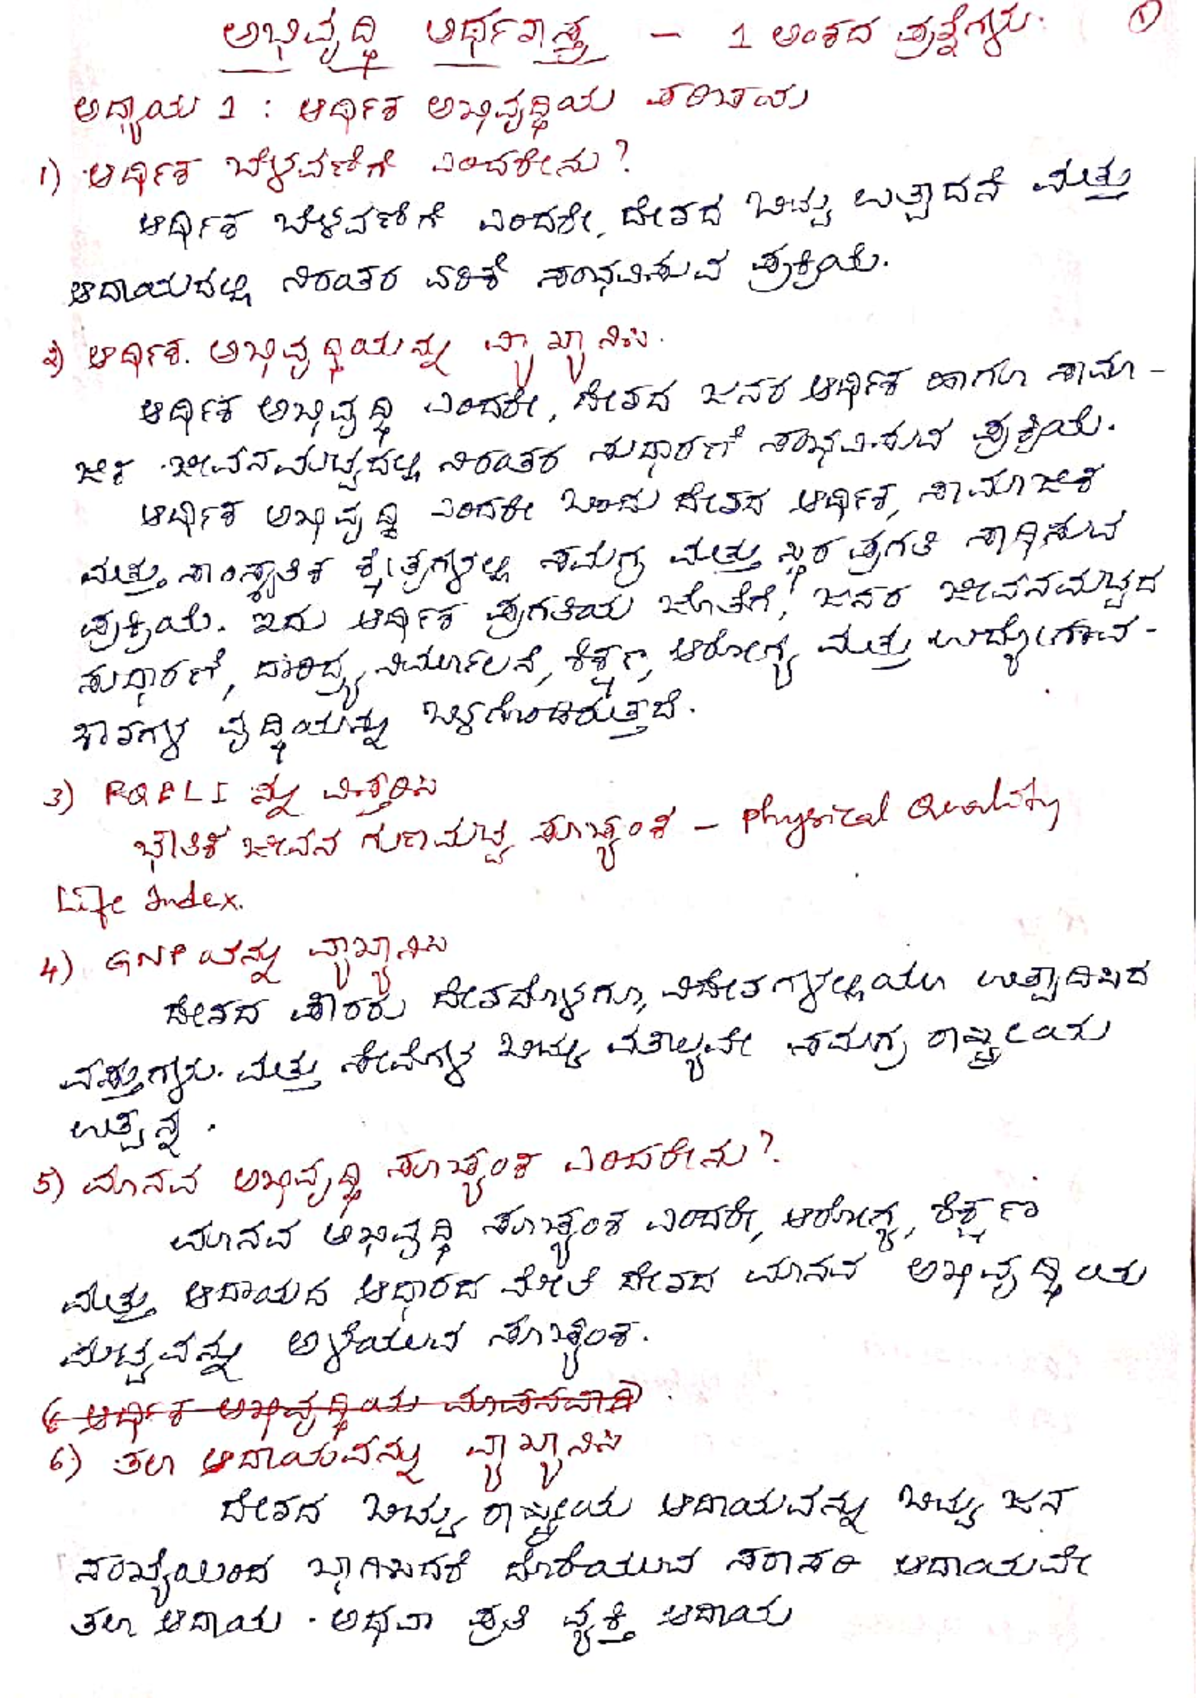 ಅಭಿವೃದ್ಧಿ ಅರ್ಥಶಾಸ್ತ್ರ - 1 ಅಂಶದ ಪ್ರಶ್ನೆಗಳು. ①
ಅಧ್ಯಾಯ 1 : ಆರ್ಥಿಕ ಅಭಿವೃದ್ಧಿಯ ಪರಿಚಯ
1) ಆರ್ಥಿಕ ಬೆಳವಣಿಗೆ ಎಂದರೇನು?
ಆರ್ಥಿಕ ಬೆಳವಣಿಗೆ ಎಂದರೇ, ದೇಶದ ಒಟ್ಟು ಉತ್ಪಾದನೆ ಮತ್ತು
ಆದಾಯದಲ್ಲಿ ನಿರಂತರ ಏರಿಕೆ ಸಂಭವಿಸುವ ಪ್ರಕ್ರಿಯೆ.
2) ಆರ್ಥಿಕ. ಅಭಿವೃದ್ಧಿಯನ್ನು ವ್ಯಾಖ್ಯಾನಿಸಿ.
ಆರ್ಥಿಕ ಅಭಿವೃದ್ಧಿ ಎಂದರೇ, ದೇಶದ ಜನರ ಆರ್ಥಿಕ ಹಾಗೂ ಸಾಮಾ -
ಜಿಕ ಜೀವನಮಟ್ಟದಲ್ಲಿ ನಿರಂತರ ಸುಧಾರಣೆ ಸಂಭವಿಸುವ ಪ್ರಕ್ರಿಯೆ.
ಆರ್ಥಿಕ ಅಭಿವೃದ್ಧಿ ಎಂದರೇ ಒಂದು ದೇಶದ ಆರ್ಥಿಕ, ಸಾಮಾಜಿಕ
ಮತ್ತು ಸಾಂಸ್ಕೃತಿಕ ಕ್ಷೇತ್ರಗಳಲ್ಲಿ ಸಮಗ್ರ ಮತ್ತು ಸ್ಥಿರ ಪ್ರಗತಿ ಸಾಧಿಸುವ
ಪ್ರಕ್ರಿಯೆ. ಇದು ಆರ್ಥಿಕ ಪ್ರಗತಿಯ ಜೊತೆಗೆ, ಜನರ ಜೀವನಮಟ್ಟದ
ಸುಧಾರಣೆ, ದಾರಿದ್ರ್ಯ ನಿರ್ಮೂಲನೆ, ಶಿಕ್ಷಣ, ಆರೋಗ್ಯ ಮತ್ತು ಉದ್ಯೋಗಾವ -
ಕಾಶಗಳ ವೃದ್ಧಿಯನ್ನು ಒಳಗೊಂಡಿರುತ್ತದೆ.
3) PQLI ನ್ನು ವಿಸ್ತರಿಸಿ
ಭೌತಿಕ ಜೀವನ ಗುಣಮಟ್ಟ ಸೂಚ್ಯಂಕ - Physical Quality
Life Index.
4) GNP ಯನ್ನು ವ್ಯಾಖ್ಯಾನಿಸಿ
ದೇಶದ ಪೌರರು ದೇಶದೊಳಗೂ, ವಿದೇಶಗಳಲ್ಲಿಯೂ ಉತ್ಪಾದಿಸಿದ
ವಸ್ತುಗಳು. ಮತ್ತು ಸೇವೆಗಳ ಒಟ್ಟು ಮೌಲ್ಯವೇ ಸಮಗ್ರ ರಾಷ್ಟ್ರೀಯ
ಉತ್ಪನ್ನ.
5) ಮಾನವ ಅಭಿವೃದ್ಧಿ ಸೂಚ್ಯಂಕ ಎಂದರೇನು?
ಮಾನವ ಅಭಿವೃದ್ಧಿ ಸೂಚ್ಯಂಕ ಎಂದರೇ, ಆರೋಗ್ಯ, ಶಿಕ್ಷಣ
ಮತ್ತು ಆದಾಯದ ಆಧಾರದ ಮೇಲೆ ದೇಶದ ಮಾನವ ಅಭಿವೃದ್ಧಿಯ
ಮಟ್ಟವನ್ನು ಅಳೆಯುವ ಸೂಚ್ಯಂಕ.
6 ಆರ್ಥಿಕ ಅಭಿವೃದ್ಧಿಯ
6) ತಲಾ ಆದಾಯವನ್ನು ವ್ಯಾಖ್ಯಾನಿಸಿ
ದೇಶದ ಒಟ್ಟು ರಾಷ್ಟ್ರೀಯ ಆದಾಯವನ್ನು ಒಟ್ಟು ಜನ
ಸಂಖ್ಯೆಯಿಂದ ಭಾಗಿಸಿದರೆ ದೊರೆಯುವ ಸರಾಸರಿ ಆದಾಯವೇ
ತಲಾ ಆದಾಯ. ಅಥವಾ ಪ್ರತಿ ವ್ಯಕ್ತಿ ಆದಾಯ